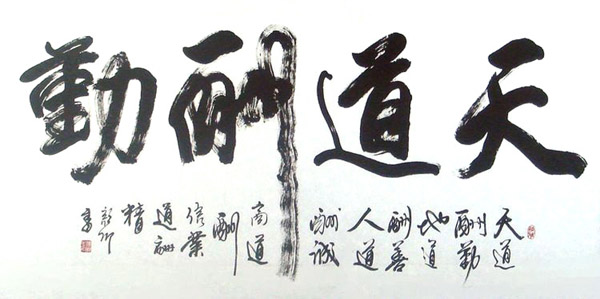 天道酬勤
天道
酬勤
地道
酬善
人道
酬诚
商道
酬
信業
道酬
精
書